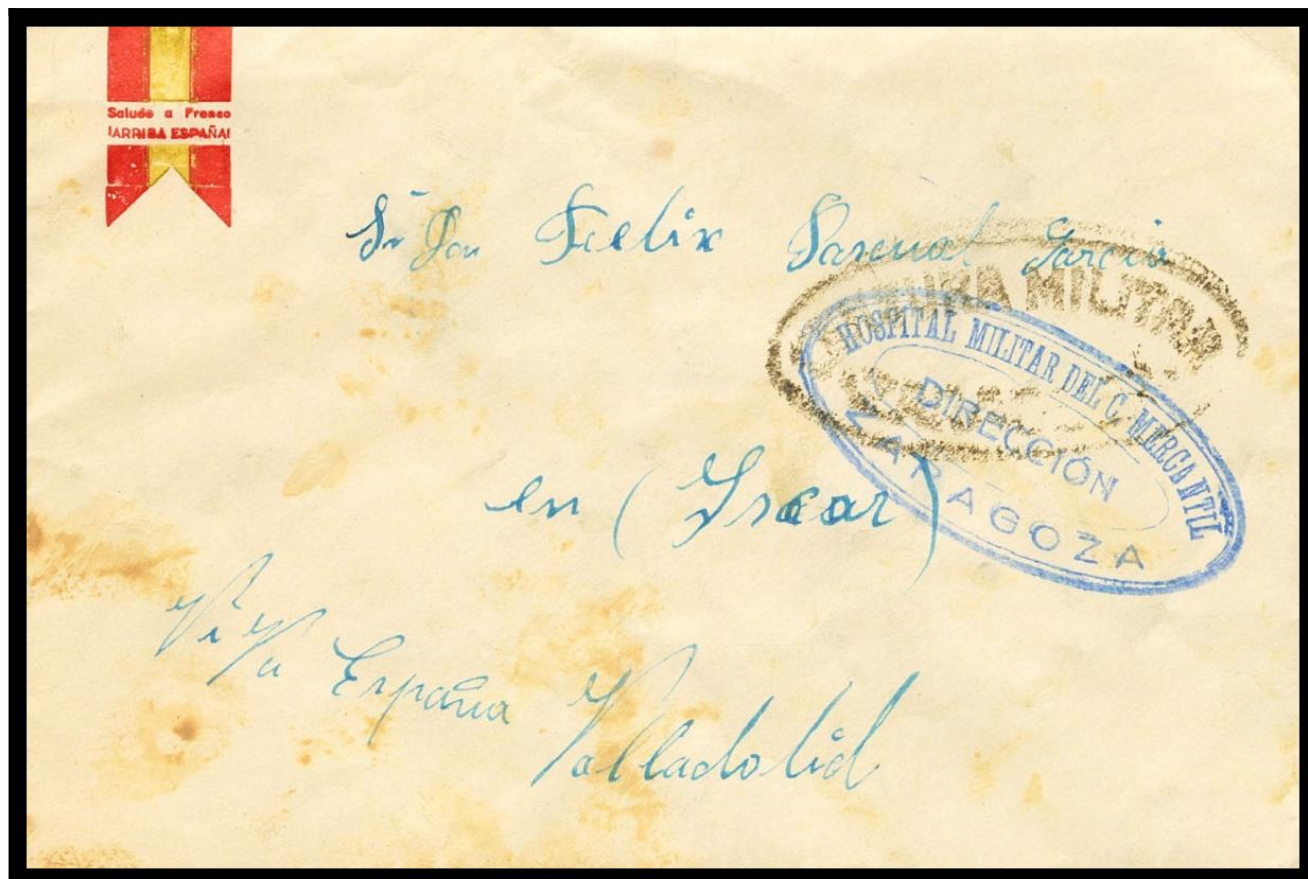 Saludo a Franco
¡ARRIBA ESPAÑA!
Sr Don Felix Pascual Garcia
MILITAR
HOSPITAL MILITAR DEL C. MERCANTIL
DIRECCIÓN
ZARAGOZA
en (Iscar)
ViVa España
Valladolid